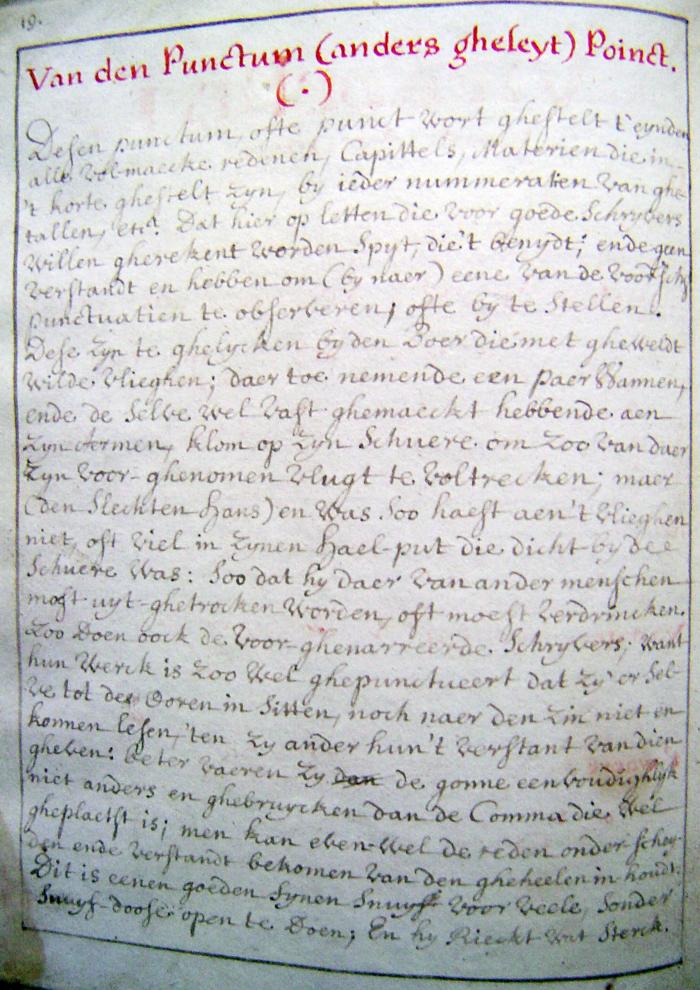 19.
Van den Punctum (anders gheleyt) Poinct.
(.)
Desen punctum, ofte punct wort ghestelt t'eynden
alle volmaeckte redenen, Capittels, Materien die in
't korte ghestelt zyn, by ieder nummeratien van ghe-
tallen, etc.ª Dat hier op letten die voor goede Schryvers
willen gherekent worden Spyt, die't benydt; ende geen
verstandt en hebben om (by naer) eene van de voorsch
punctuatien te observeren; ofte by te Stellen.
Dese zyn te ghelycken by den Boer die met gheweldt
wilde vlieghen; daer toe nemende een paer Wannen,
ende de Selve wel vast ghemaeckt hebbende aen
zyn Armen, klom op zyn Schuere om zoo van daer
zyn voor-ghenomen vlugt te voltrecken; maer
(den Sleckten Hans) en was soo haest aen't vlieghen
niet, oft viel in zynen Hael-put die dicht by de
Schuere was: Soo dat hy daer van ander menschen
most uyt-ghetrocken worden, oft moest verdrincken.
Zoo Doen oock de voor-ghenarreerde Schryvers; want
hun Werck is zoo wel ghepunctueert dat zy er Sel-
ve tot de Ooren in Sitten, noch naer den zin niet en
konnen lesen, 'ten zy ander hun't verstant van dien
gheven: beter vaeren zy dan de gonne eenvoudighlyk
niet anders en ghebruycken dan de Comma die wel
gheplaetst is; men kan even-wel de reden onder-schey-
den ende verstandt bekomen van den gheheelen in-houdt.
Dit is eenen goeden fynen Snuyf voor veele, Sonder
Snuyf-doose open te Doen; En hy Rieckt wat Sterck.